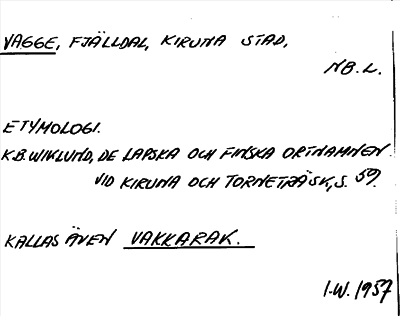 VAGGE, FJÄLLDAL, KIRUNA STAD,
NB.L.
ETYMOLOGI.
K.B. WIKLUND, DE LAPSKA OCH FINSKA ORTNAMNEN
VID KIRUNA OCH TORNETRÄSK, S. 59.
KALLAS ÄVEN VAKKARAK.
I.W. 1957